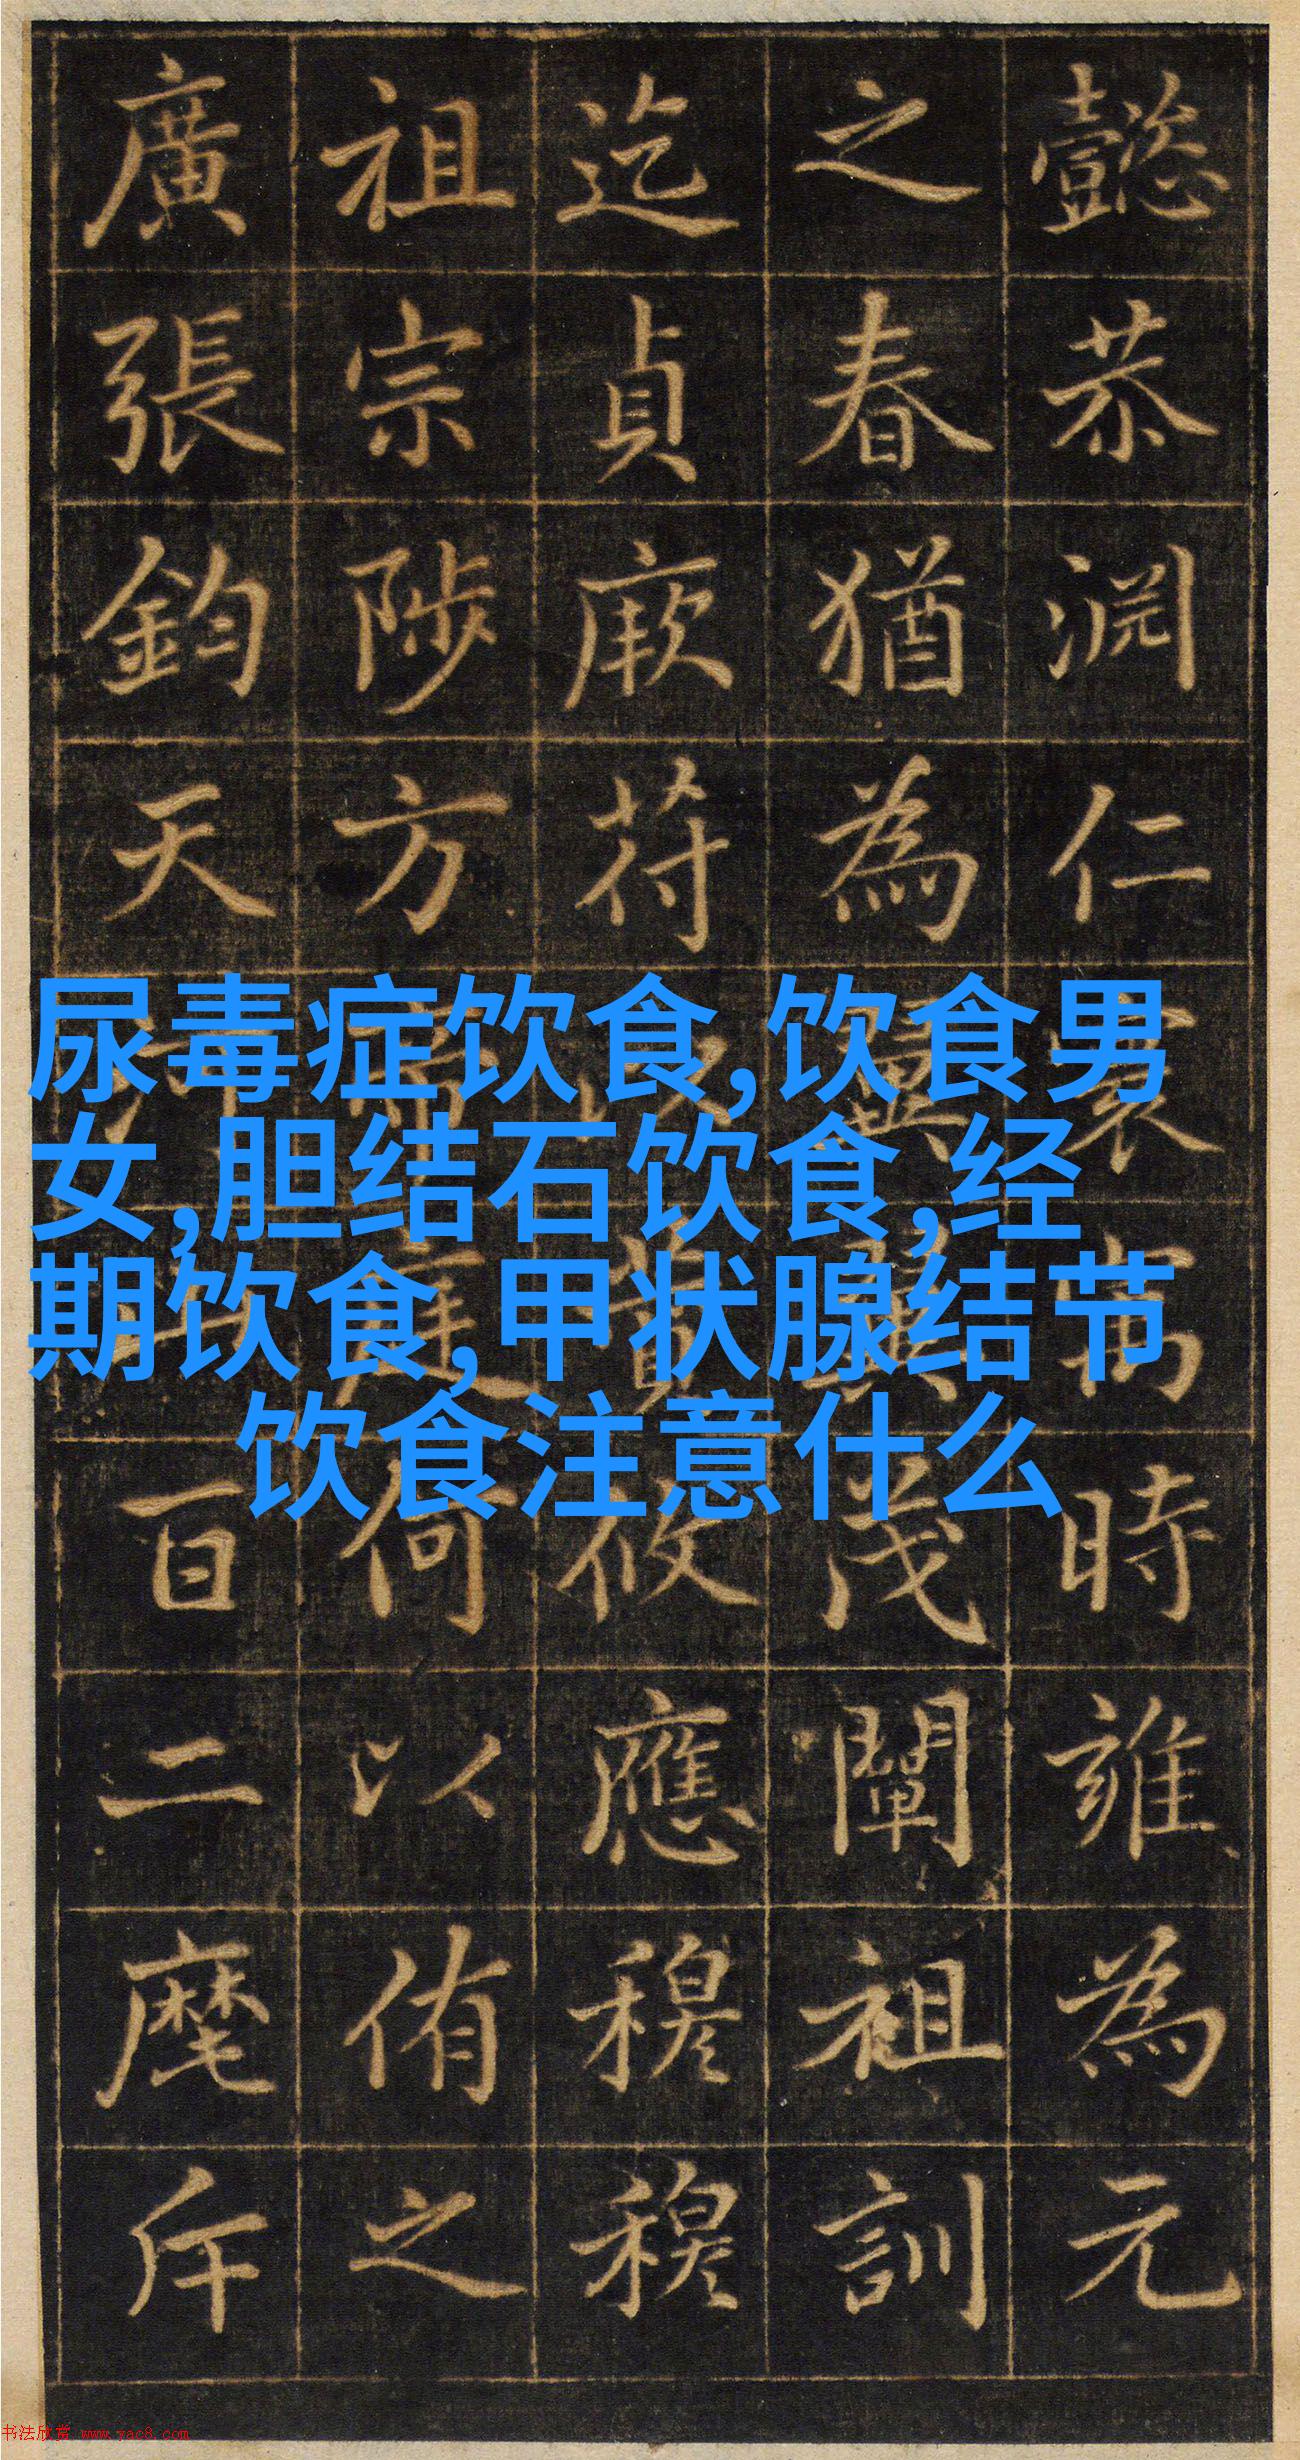 懿恭渊仁寰寓時雍為元
之春猶為茂闡祖訓
迄貞厥苻攸應穆穆
祖宗陟方帝庭何以侑之
廣張鈞天百二麾斥
尿毒症饮食,饮食男
女,胆结石饮食,经
期饮食,甲状腺结节
饮食注意什么
书法欣赏 www.yac8.com